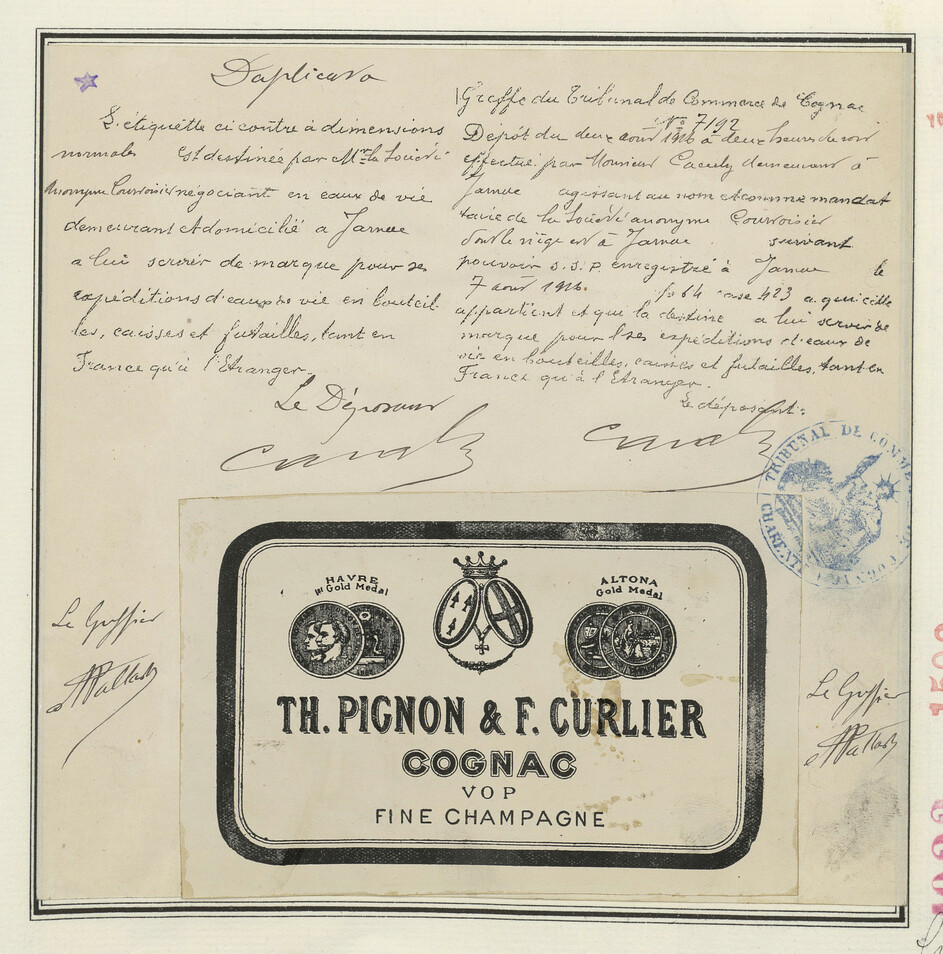 Duplicata
L'étiquette ci contre à dimensions
normales est destinée par Mr la Société
Anonyme Courvoisier négociant en eaux de vie
demeurant et domicilié à Jarnac
a lui servir de marque pour ses
expéditions d'eaux de vie en bouteil
les, caisses et futailles, tant en
France qu'à l'Etranger.
Le Déposant
Greffe du Tribunal de Commerce de Cognac
No 7192
Dépôt du deux août 1916 à deux heures du soir
effectué par Monsieur demeurant à
Jarnac agissant au nom et comme mandat
taire de la Société anonyme Courvoisier
dont le siège est à Jarnac suivant
pouvoir S.S.P. enregistré à Jarnac le
7 août 1916. fo 64 case 423 a qui elle
appartient et que la destine a lui servir de
marque pour ses expéditions d'eaux de
vie en bouteilles, caisses et futailles, tant en
France qu'à l'Etranger.
Le déposant:
TRIBUNAL DE COMME
DE COGNAC
CHARENTE
HAVRE
Gold Medal
ALTONA
Gold Medal
TH. PIGNON & F. CURLIER
COGNAC
VOP
FINE CHAMPAGNE
Le Greffier
Le Greffier